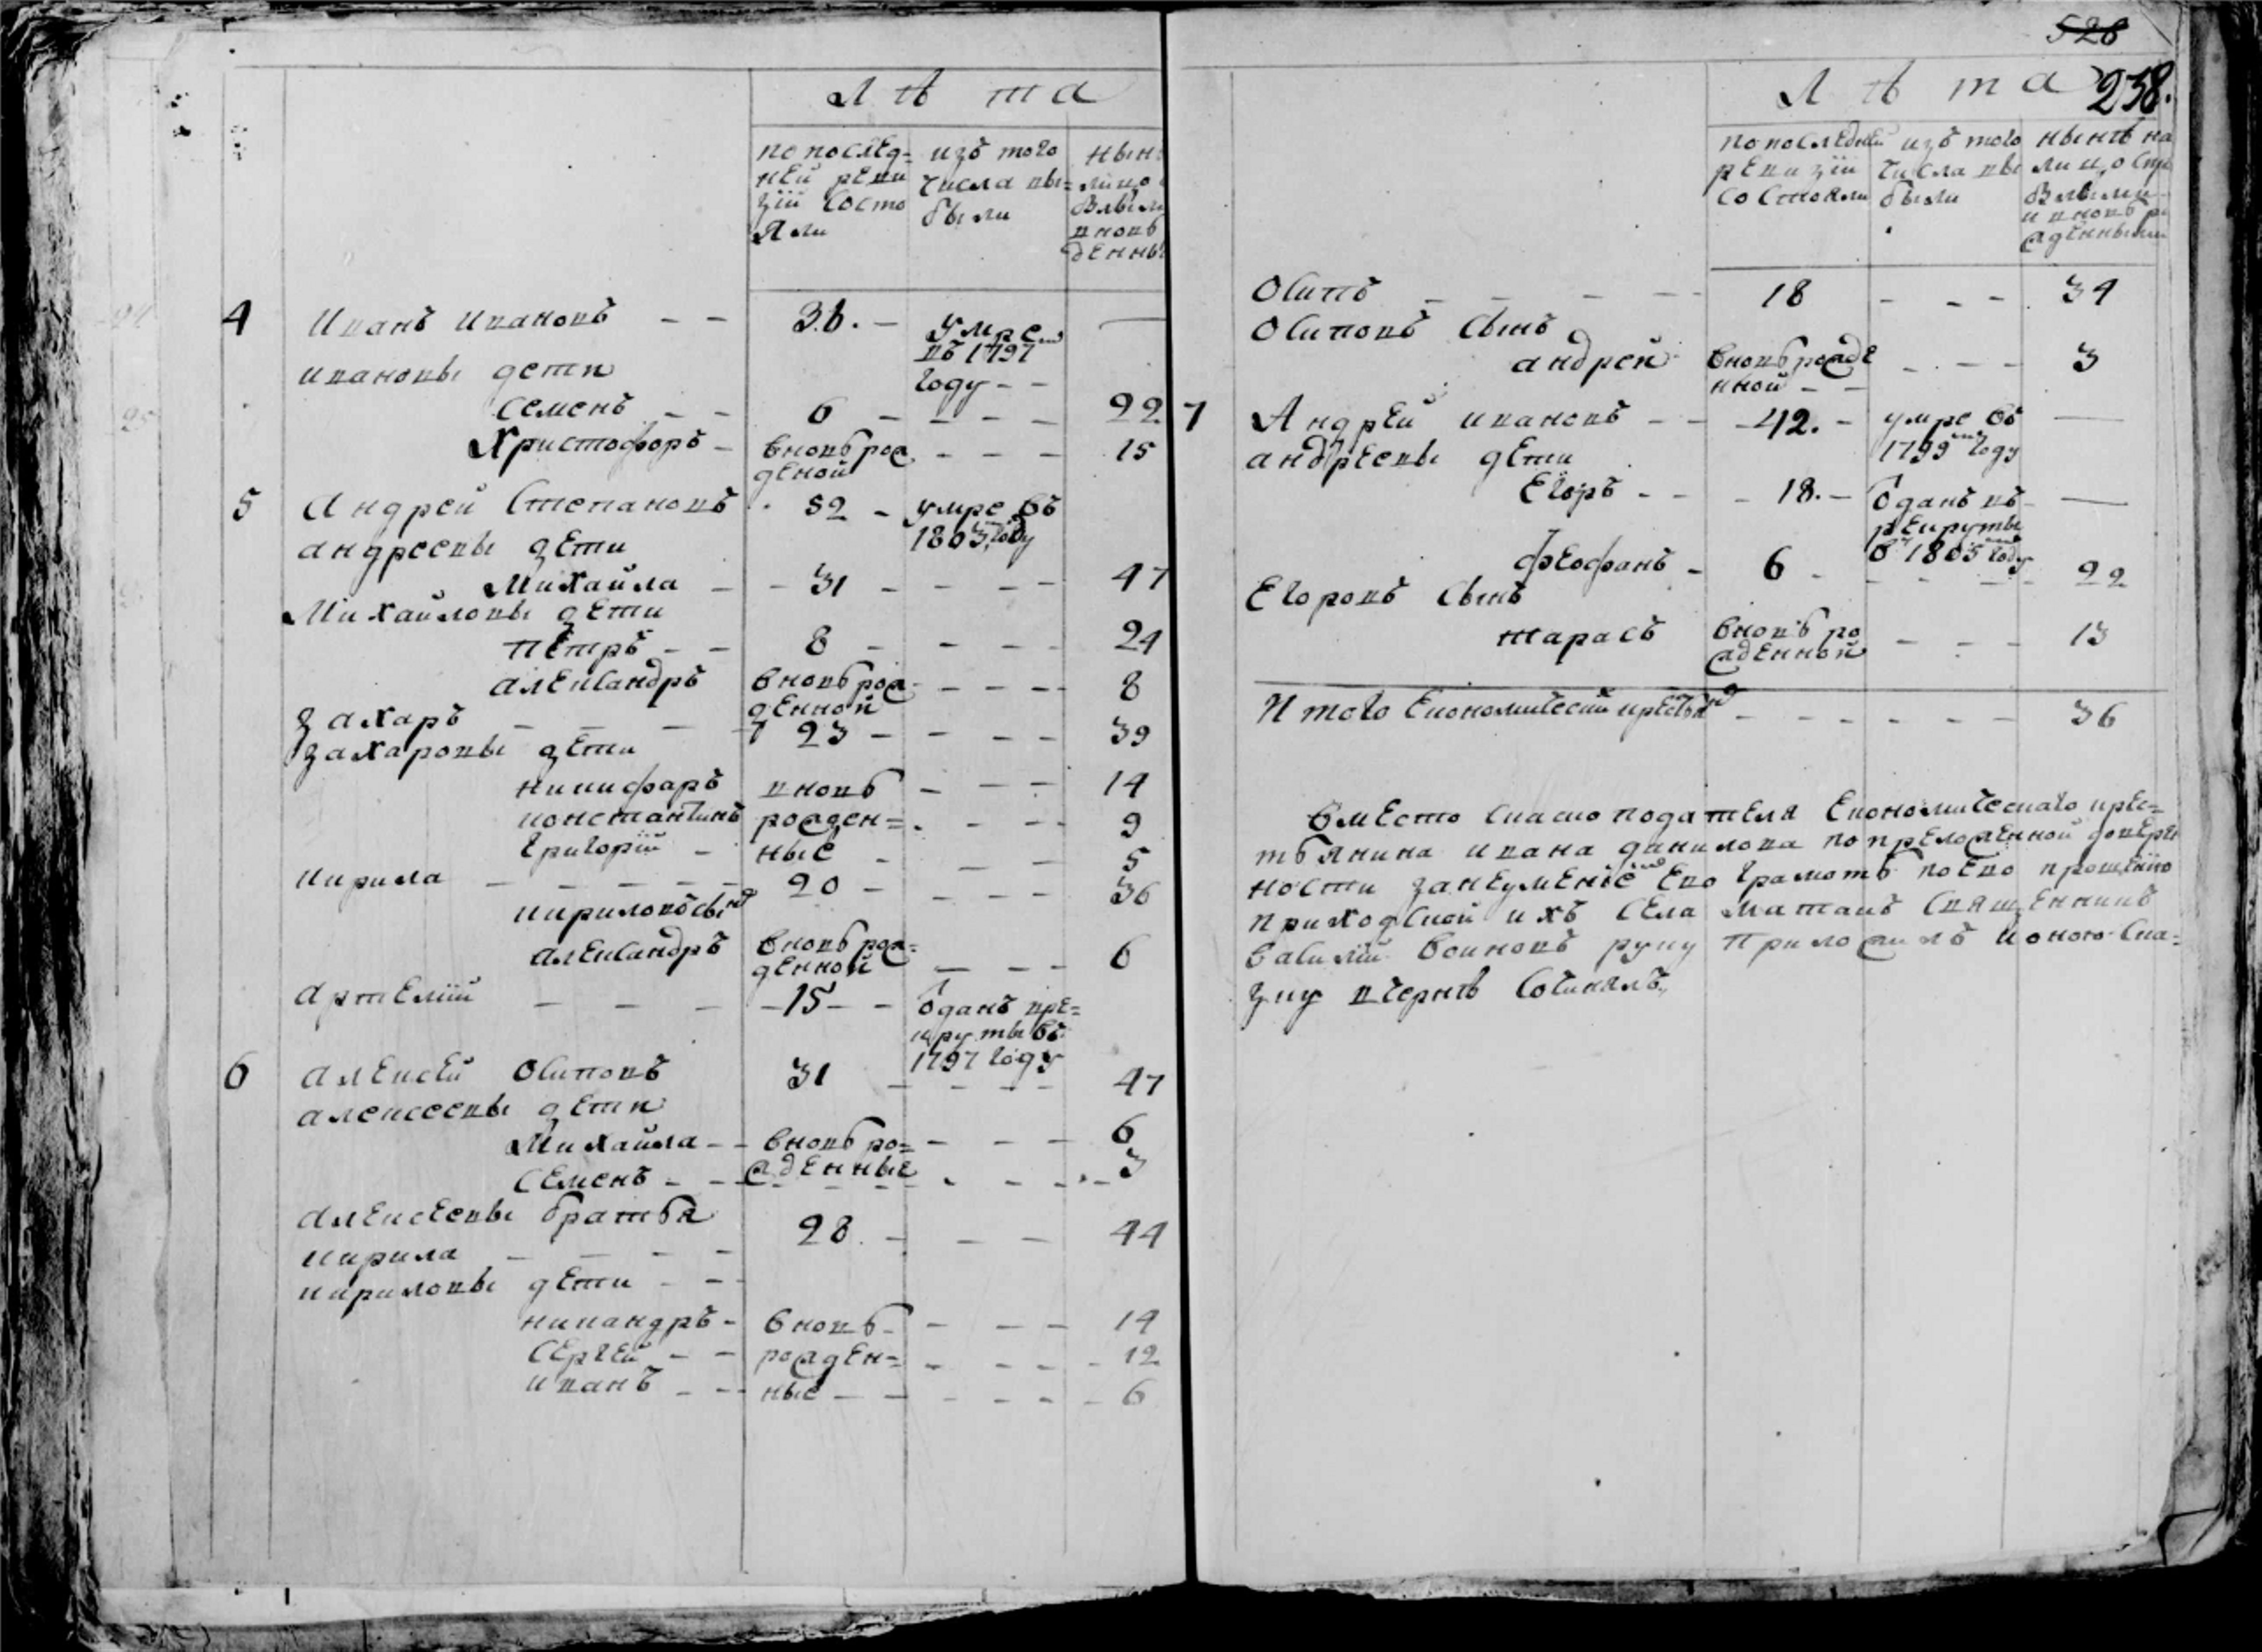 Лѣта
по послед=
ней реви
зіи состо
яли
изъ того
числа вы=
были
4 Иванъ Ивановъ — — 36. — умре
въ 1797
году — —
Ивановы дети
Семенъ — — 6 — — — — 22
Христофоръ — вновь рож
деной — — — 15
5 Андрей Степановъ 52 — умре въ
1803 году
Андреевы дети
Михайла — 31 — — — — 47
Михайловы дети
Петръ — — 8 — — — — 24
Александръ вновь рож
денной — — — — 8
Захаръ — — — — 23 — — — — 39
Захаровы дети
Никифаръ вновь — — — 14
Константинъ рожден= — — — 9
Григорій — ные — — — 5
Кирила — — — — — 20 — — — — 36
Кириловъ сынъ
Александръ вновь рож=
денной — — — 6
Артемій — — — — 15 — — Отданъ вре=
круты въ
1797 году
6 Алексей Осиповъ 31 — — — — 47
Алексеевы дети
Михайла — — вновь ро= — — — 6
Семенъ — — жденные — — — 3
Алексеевы братья
Кирила — — — — 28. — — — 44
Кириловы дети — —
Никандръ — вновь — — — — 14
Сергей — — рожден= — — — — 12
Иванъ — — ные — — — — — — 6
528
238.
Лѣта
по последней
ревизіи
состояли
изъ того
числа вы
были
Осипъ — — — — 18 — — — 34
Осиповъ сынъ
Андрей вновь рожде
нной — — — — — 3
7 Андрей Ивановъ — — 42. — умре въ —
1799 году
Андреевы дети
Егоръ — — 18. — Отданъ въ —
рекруты
в 1805 году
Феофанъ — 6 — — — — 22
Егоровъ сынъ
Тарасъ вновь ро
жденной — — — 13
Итого Економическихъ крестьянъ — — — — — — 36
Вместо скаскоподателя Економическаго крес=
тьянина Ивана Данилова по преложенной доверен
ности занеуменіемъ Ево грамотѣ поево прошенію
приходской ихъ села священникъ
Василій Воиновъ руку приложилъ ионою ска=
зку вчернѣ сочинялъ.